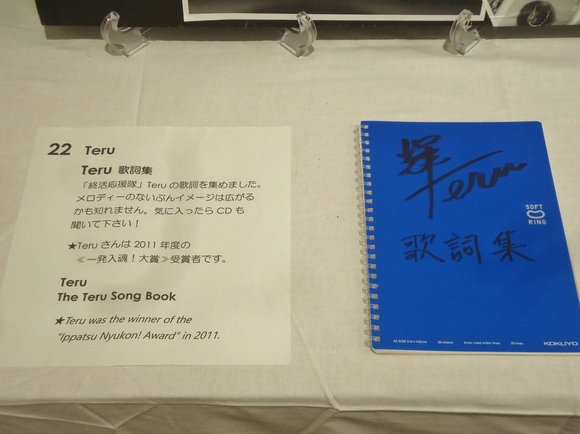 22 Teru
Teru 歌詞集
「終活応援隊」Teru の歌詞を集めました。
メロディーのないぶんイメージは広がる
かも知れません。気に入ったら CD も
聞いて下さい!
★Teru さんは 2011 年度の
≪一発入魂!大賞≫受賞者です。
Teru
The Teru Song Book
★Teru was the winner of the
"Ippatsu Nyukon! Award" in 2011.
輝 Teru
SOFT
RING
歌詞集
KOKUYO